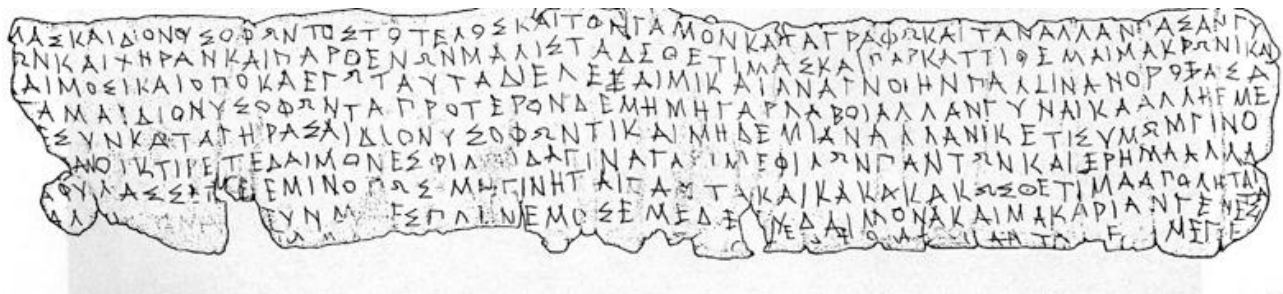 ΜΑΣΚΑΙΔΙΟΝΥΣΟΦΩΝΤΟΣΤΟΤΕΛΟΣΚΑΙΤΟΝΓΑΜΟΝΚΑΤΑΓΡΑΦΩΚΑΙΤΑΝΑΛΛΑΝΠΑΣΑΝΓΥ
ΩΝΚΑΙΧΗΡΑΝΚΑΙΠΑΡΘΕΝΩΝΜΑΛΙΣΤΑΔΕΘΕΤΙΜΑΣΚΑΙΠΑΡΚΑΤΤΙΘΕΜΑΙΜΑΚΡΩΝΙΚΑΙ
ΔΑΙΜΟΣΙΚΑΙΟΠΟΚΑΕΓΩΤΑΥΤΑΔΙΕΛΕΞΑΙΜΙΚΑΙΑΝΑΓΝΟΙΗΝΠΑΛΙΝΑΝΟΡΟΞΑΣΑ
ΓΑΜΑΙΔΙΟΝΥΣΟΦΩΝΤΑΠΡΟΤΕΡΟΝΔΕΜΗΜΗΓΑΡΛΑΒΟΙΑΛΛΑΝΓΥΝΑΙΚΑΑΛΛΗΕΜΕ
ΕΣΥΝΚΑΤΑΓΗΡΑΣΑΙΔΙΟΝΥΣΟΦΩΝΤΙΚΑΙΜΗΔΕΜΙΑΝΑΛΛΑΝΙΚΕΤΙΣΥΜΩΜΓΙΝΟ
ΑΝΟΙΚΤΙΡΕΤΕΔΑΙΜΟΝΕΣΦΙΛ ΙΔΑΓΙΝΑΓΑΡΙΜΕΦΙΛΩΝΠΑΝΤΩΝΚΑΙΕΡΗΜΑΑΛΛΑ
ΑΦΥΛΑΣΣΕΤΕΕΜΙΝΟΠΩΣΜΗΓΙΝΗΤΑΙΤΑΥΤΑΚΑΙΚΑΚΑΚΑΚΩΣΘΕΤΙΜΑΑΠΟΛΗΤΑΙ
ΑΛ ΥΝΜ ΕΣΠΛΗΝΕΜΟΣΕΜΕΔΕΕΥΔΑΙΜΟΝΑΚΑΙΜΑΚΑΡΙΑΝΓΕΝΕΣ
ΜΕΓΕ